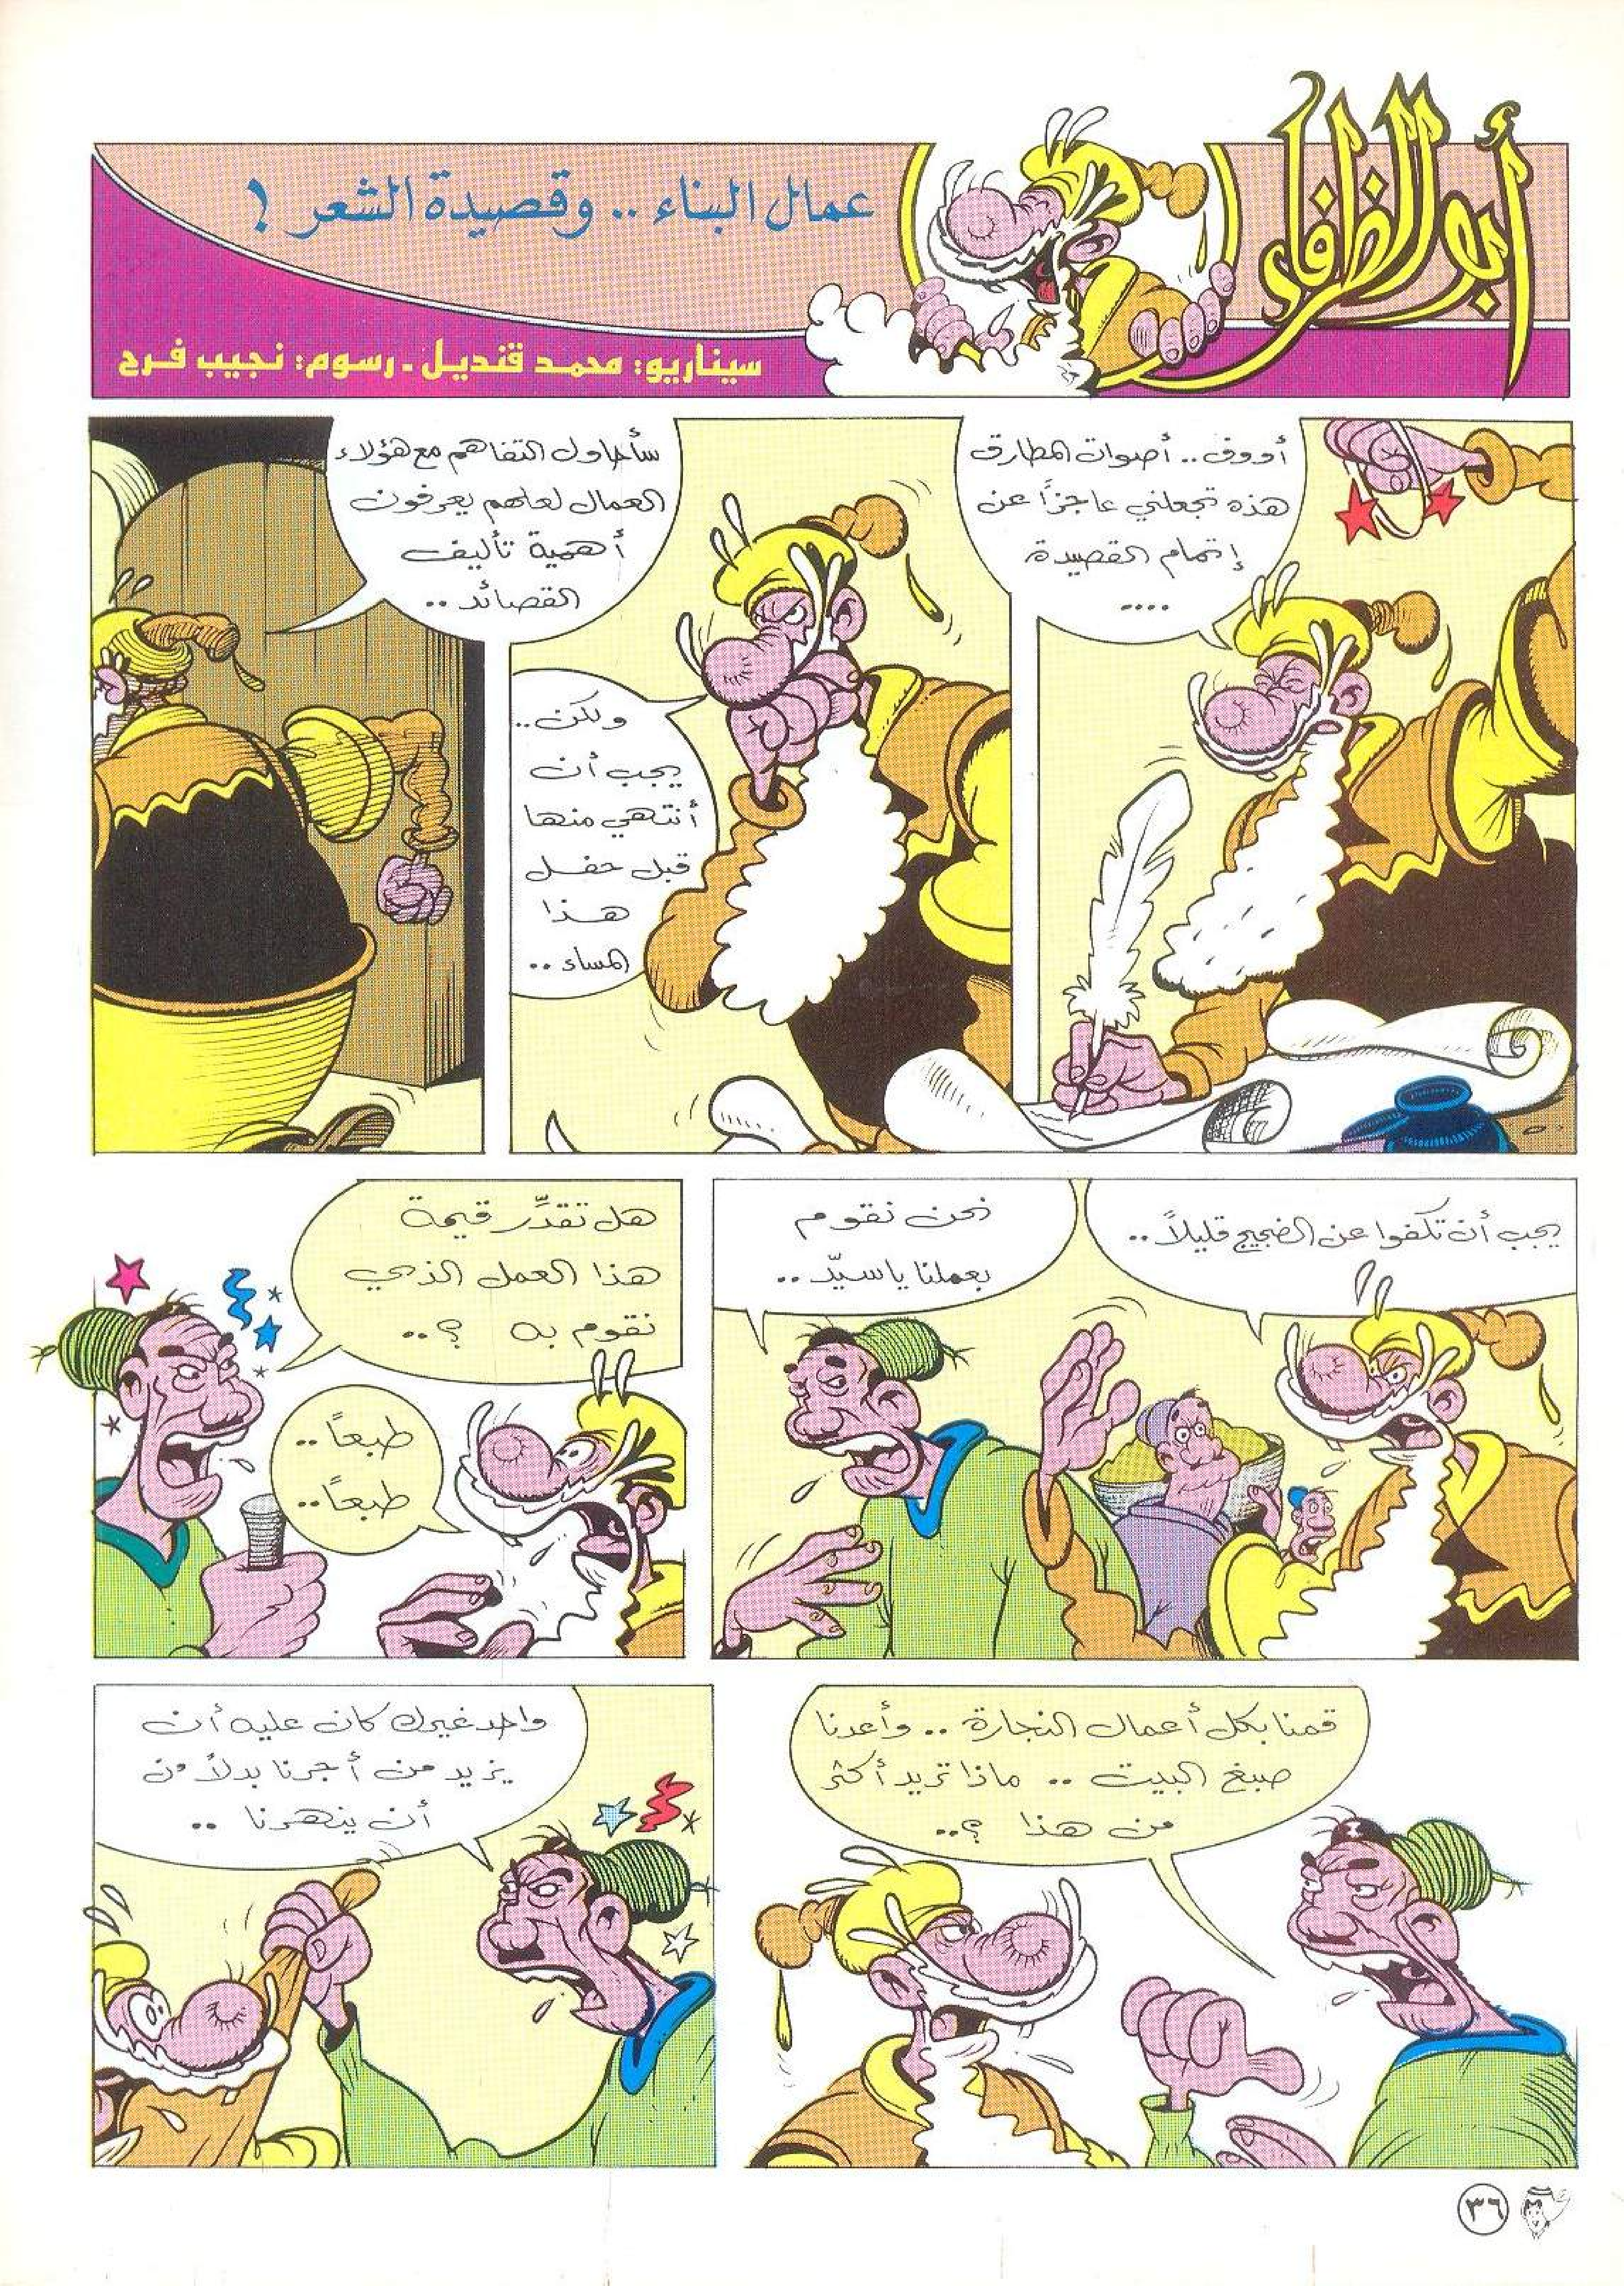 أبو الظرفاء
عمال البناء .. وقصيدة الشعر !
سيناريو: محمد قنديل - رسوم: نجيب فرح
أووف .. أصوات المطارق
هذه تجعلني عاجزاً عن
إتمام القصيدة
....
ولكن ..
يجب أن
أنتهي منها
قبل حفل
هذا
المساء ..
سأحاول التفاهم مع هؤلاء
العمال لعلهم يعرفون
أهمية تأليف
القصائد ..
يجب أن تكفوا عن الضجيج قليلاً ..
نحن نقوم
بعملنا يا سيّد ..
هل تقدِّر قيمة
هذا العمل الذي
نقوم به ؟..
طبعاً ..
طبعاً ..
قمنا بكل أعمال النجارة .. وأعدنا
صبغ البيت .. ماذا تريد أكثر
من هذا ؟..
واحد غيرك كان عليه أن
يزيد من أجرنا بدلاً من
أن ينهرنا ..
٣٦